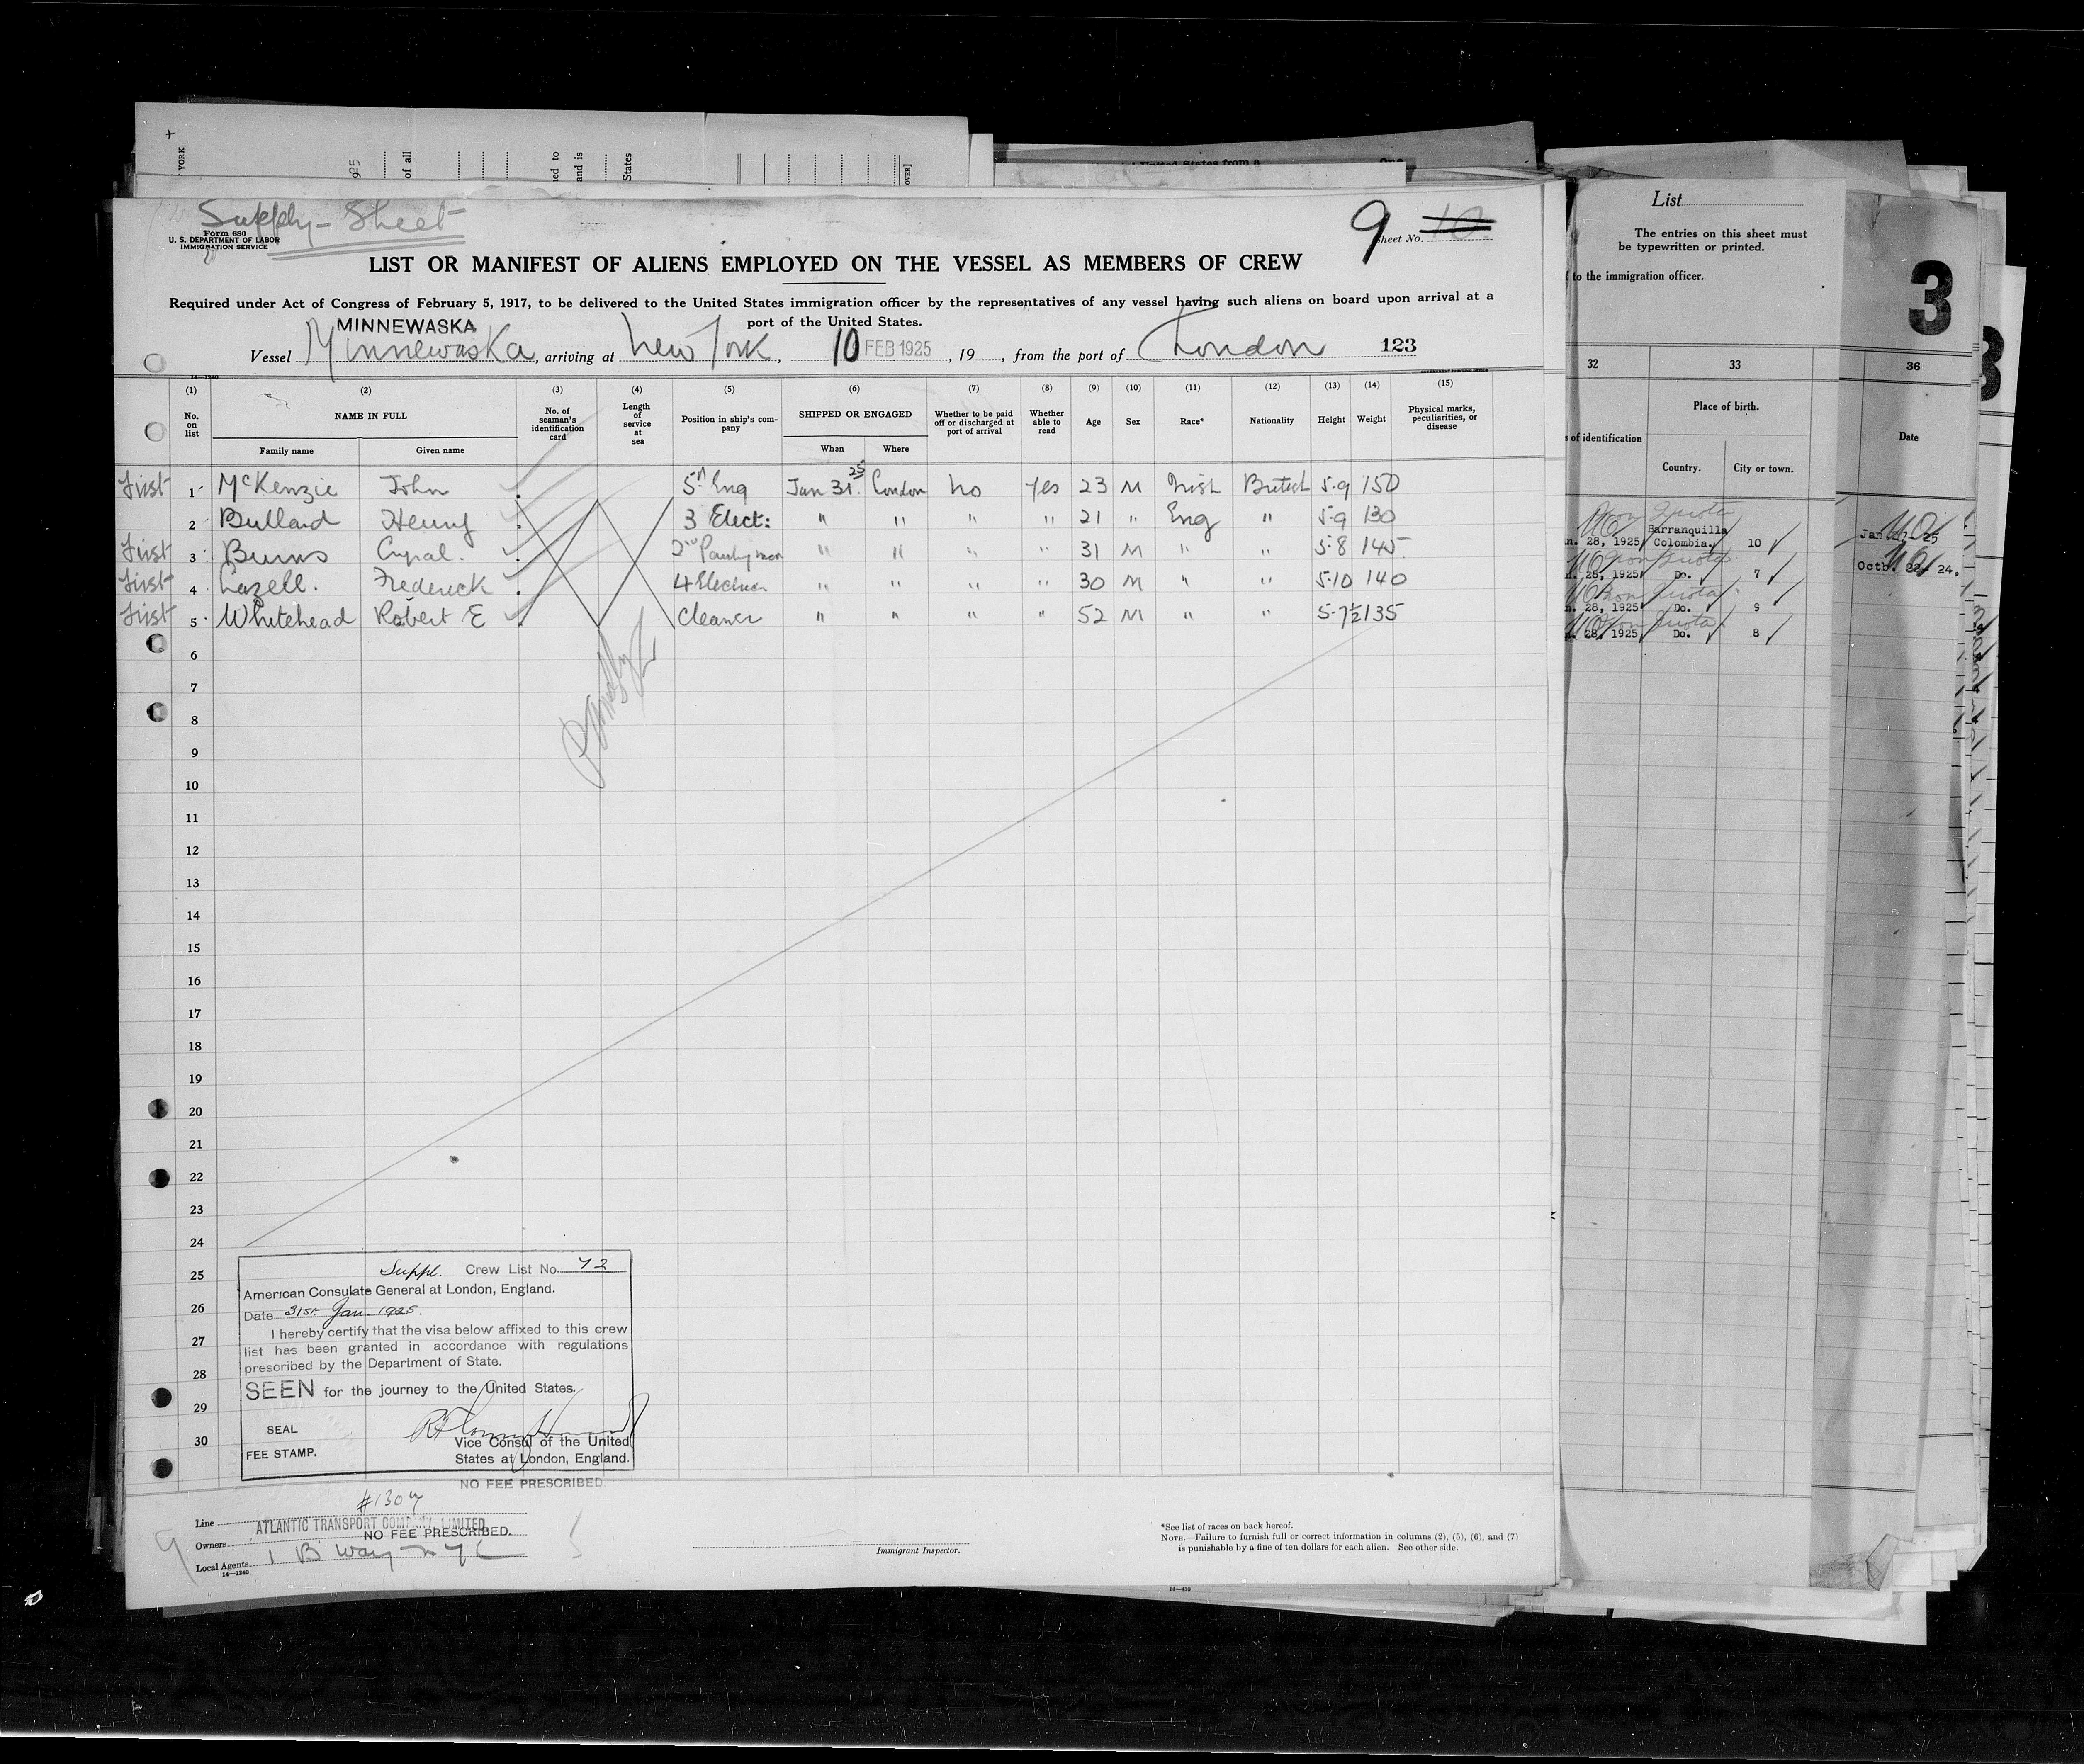 YORK
925
of all
ed to
and is
States
OVER]
Supply-Sheet
Form 680
U. S. DEPARTMENT OF LABOR
IMMIGRATION SERVICE
9 Sheet No. 10
LIST OR MANIFEST OF ALIENS EMPLOYED ON THE VESSEL AS MEMBERS OF CREW
Required under Act of Congress of February 5, 1917, to be delivered to the United States immigration officer by the representatives of any vessel having such aliens on board upon arrival at a
port of the United States.
MINNEWASKA
Vessel Minnewaska, arriving at New York, 10 FEB 1925, 19, from the port of London 123
14—1240
(1) (2) (3) (4) (5) (6) (7) (8) (9) (10) (11) (12) (13) (14) (15)
No. on list
NAME IN FULL
Family name
Given name
No. of seaman's identification card
Length of service at sea
Position in ship's company
SHIPPED OR ENGAGED
When
Where
Whether to be paid off or discharged at port of arrival
Whether able to read
Age
Sex
Race*
Nationality
Height
Weight
Physical marks, peculiarities, or disease
First 1 McKenzie John 5th Eng Jan 31 25 London No Yes 23 M Irish British 5-9 150
2 Bullard Henry 3 Elect: " " " " 21 " Eng " 5-9 130
First 3 Burns 2nd " " " " 31 M " " 5-8 145
First 4 Lazell. Frederick 4 " " " " 30 M " " 5-10 140
First 5 Whitehead Robert E Cleaner " " " " 52 M " " 5-7½ 135
6
7
8
9
10
11
12
13
14
15
16
17
18
19
20
21
22
23
24
25
26
27
28
29
30
Suppl. Crew List No. 72
American Consulate General at London, England.
Date 31st Jan. 1925.
I hereby certify that the visa below affixed to this crew
list has been granted in accordance with regulations
prescribed by the Department of State.
SEEN for the journey to the United States.
SEAL
FEE STAMP.
Vice Consul of the United
States at London, England.
NO FEE PRESCRIBED.
#1307
Line
ATLANTIC TRANSPORT COMPANY, LIMITED
NO FEE PRESCRIBED.
Owners
Local Agents 1 B way N Y C
14—1240
9
Immigrant Inspector.
*See list of races on back hereof.
NOTE.—Failure to furnish full or correct information in columns (2), (5), (6), and (7)
is punishable by a fine of ten dollars for each alien. See other side.
List
The entries on this sheet must
be typewritten or printed.
to the immigration officer.
3
32 33 36
Place of birth.
of identification
Country.
City or town.
Date
Non Quota
n. 28, 1925 Barranquilla Colombia. 10
28, 1925 Do. 7
28, 1925 Do. 9
28, 1925 Do. 8
Octb. 24.